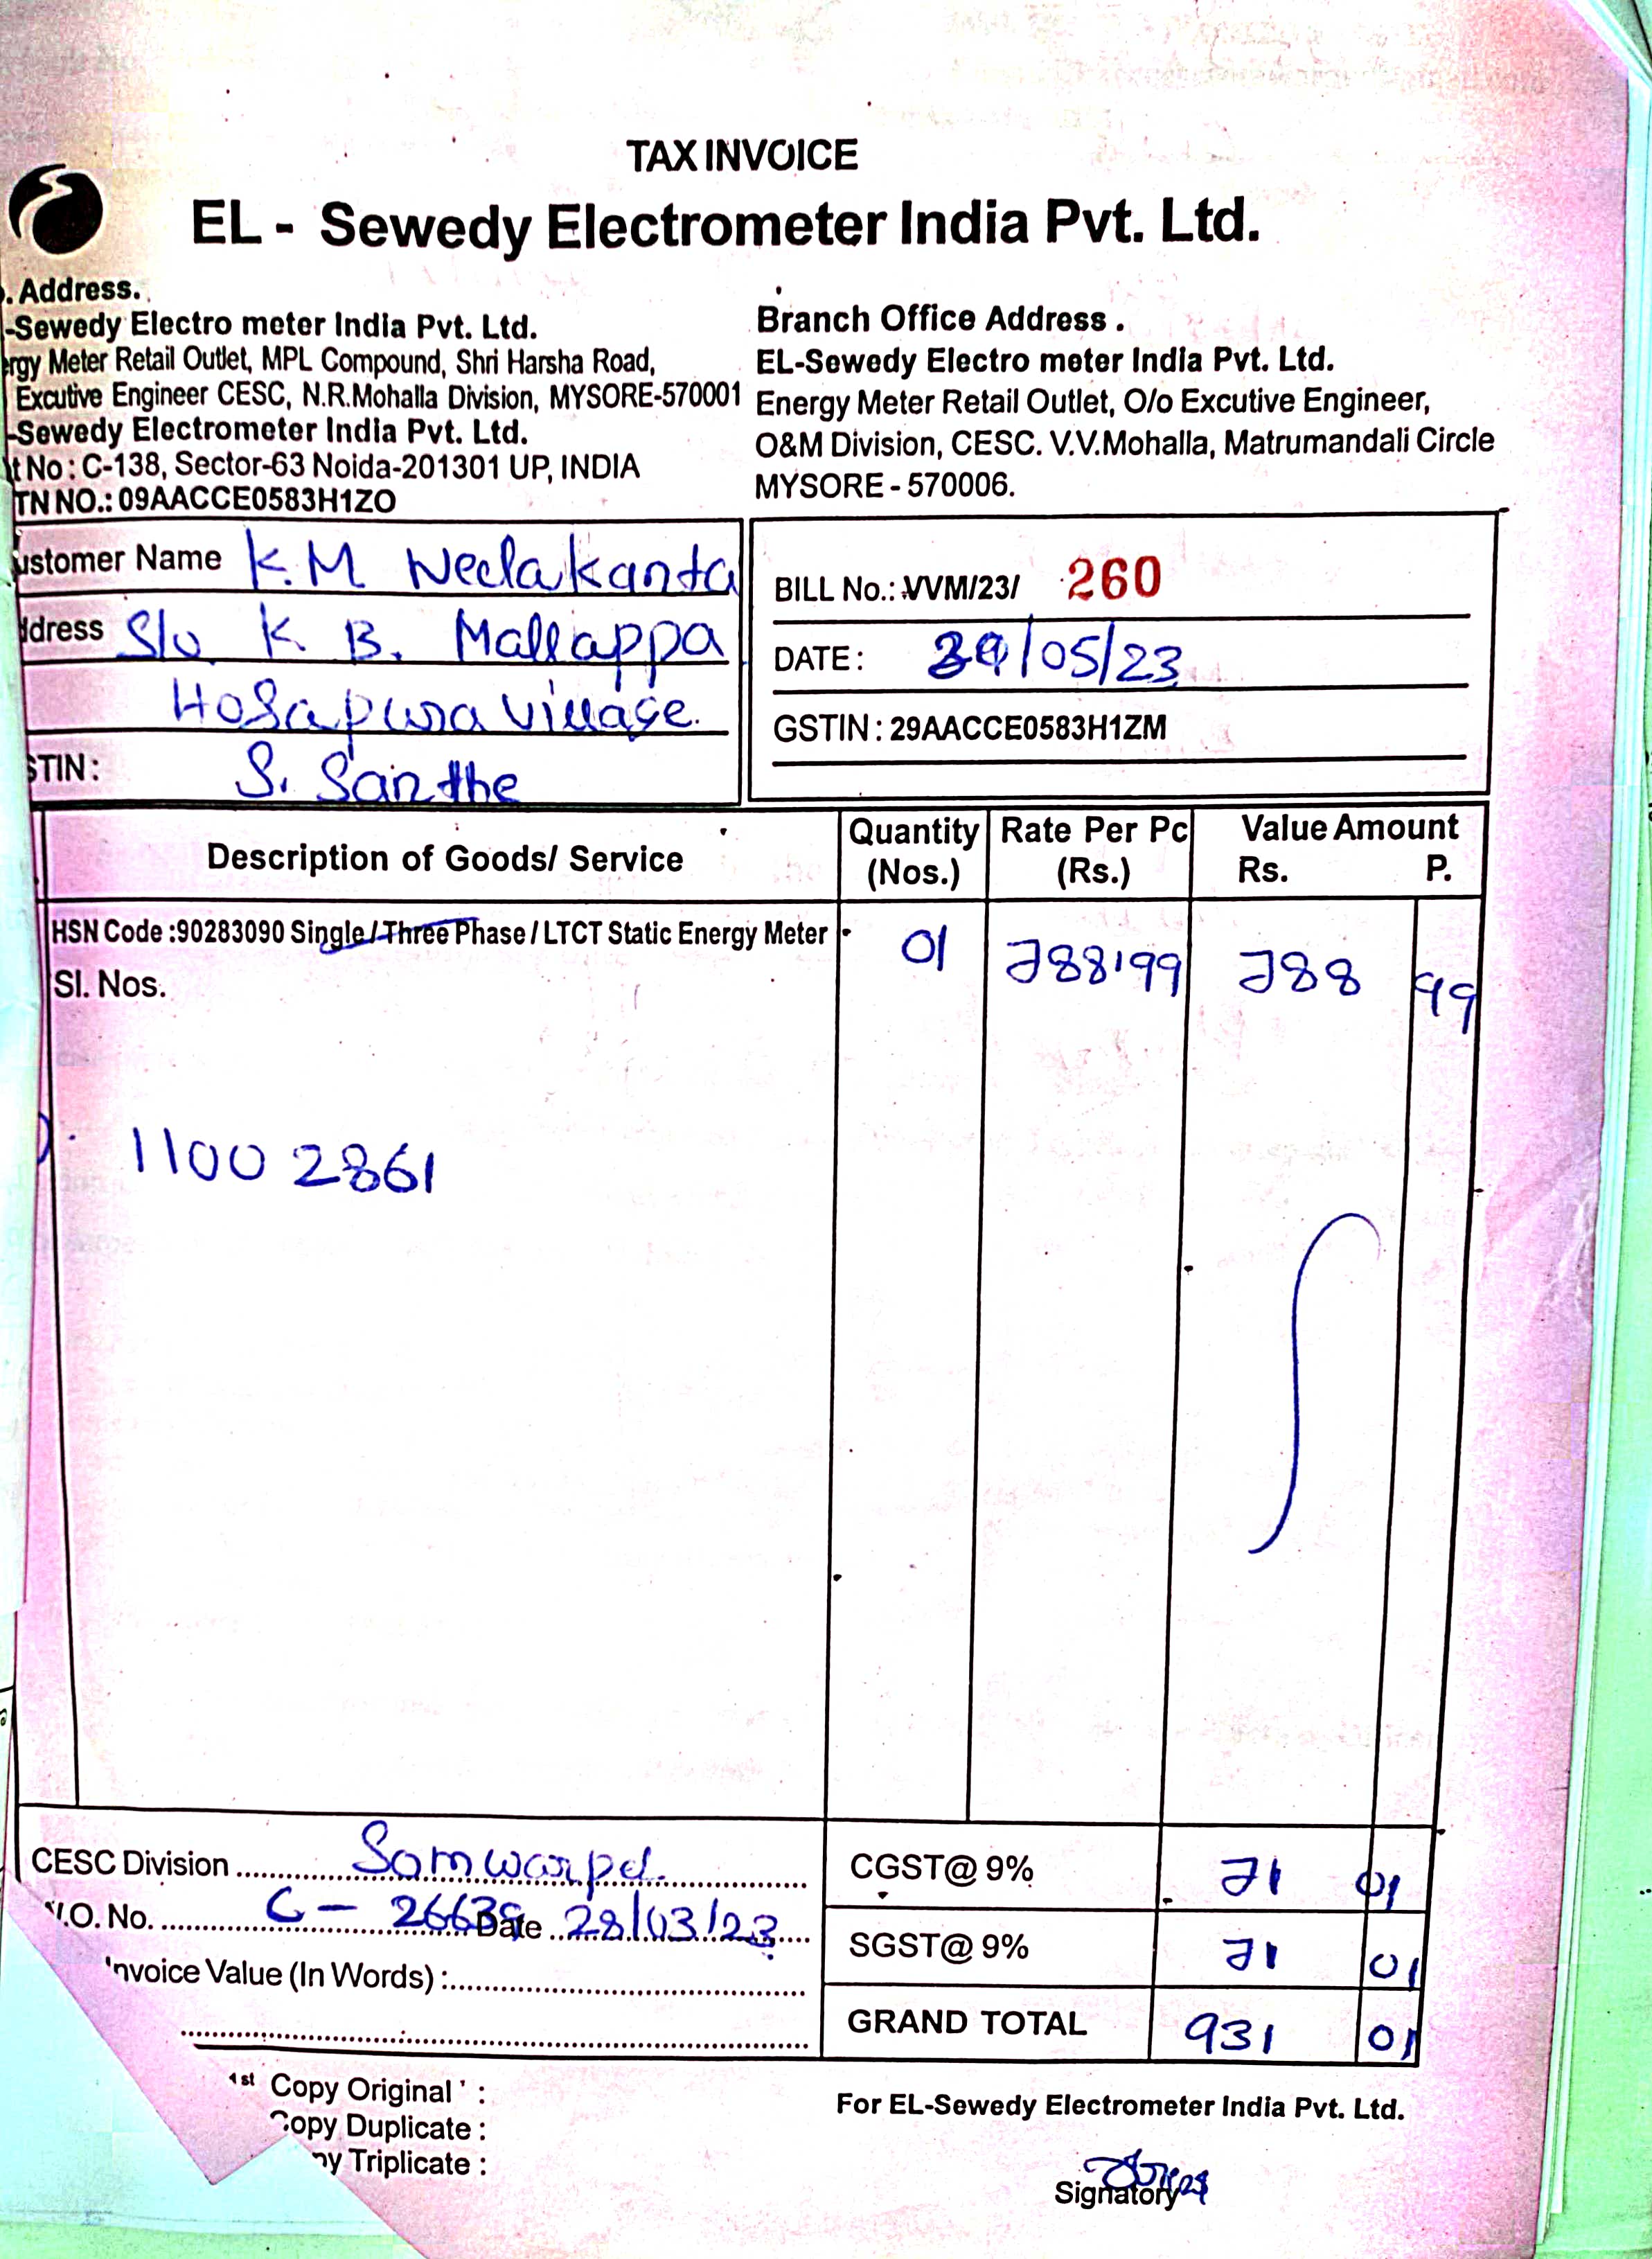 TAX INVOICE
EL - Sewedy Electrometer India Pvt. Ltd.
. Address.
-Sewedy Electro meter India Pvt. Ltd.
rgy Meter Retail Outlet, MPL Compound, Shri Harsha Road,
Excutive Engineer CESC, N.R.Mohalla Division, MYSORE-570001
-Sewedy Electrometer India Pvt. Ltd.
t No : C-138, Sector-63 Noida-201301 UP, INDIA
TN NO.: 09AACCE0583H1ZO
Branch Office Address .
EL-Sewedy Electro meter India Pvt. Ltd.
Energy Meter Retail Outlet, O/o Excutive Engineer,
O&M Division, CESC. V.V.Mohalla, Matrumandali Circle
MYSORE - 570006.
ustomer Name K.M Neelakanta
ddress S/o K B. Mallappa
Hosapura village.
STIN : S. Santhe
BILL No.: VVM/23/ 260
DATE : /05/23
GSTIN : 29AACCE0583H1ZM
Description of Goods/ Service Quantity (Nos.) Rate Per Pc (Rs.) Value Amount Rs. P.
HSN Code :90283090 Single / Three Phase / LTCT Static Energy Meter 01 788.99 788 99
Sl. Nos.
1100 2861
CESC Division Somwarpet.
.O. No. C - 26638 Date 28/03/23
nvoice Value (In Words) :
CGST@ 9% 71 01
SGST@ 9% 71 01
GRAND TOTAL 931 01
1st Copy Original ' :
Copy Duplicate :
py Triplicate :
For EL-Sewedy Electrometer India Pvt. Ltd.
Signatory